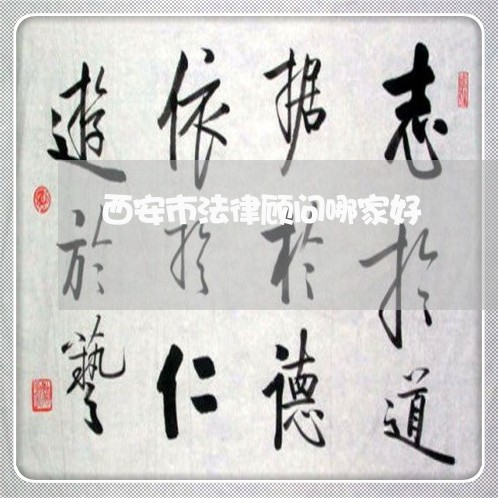 志於道
据於德
依於仁
遊於藝
西安市法律顾问哪家好